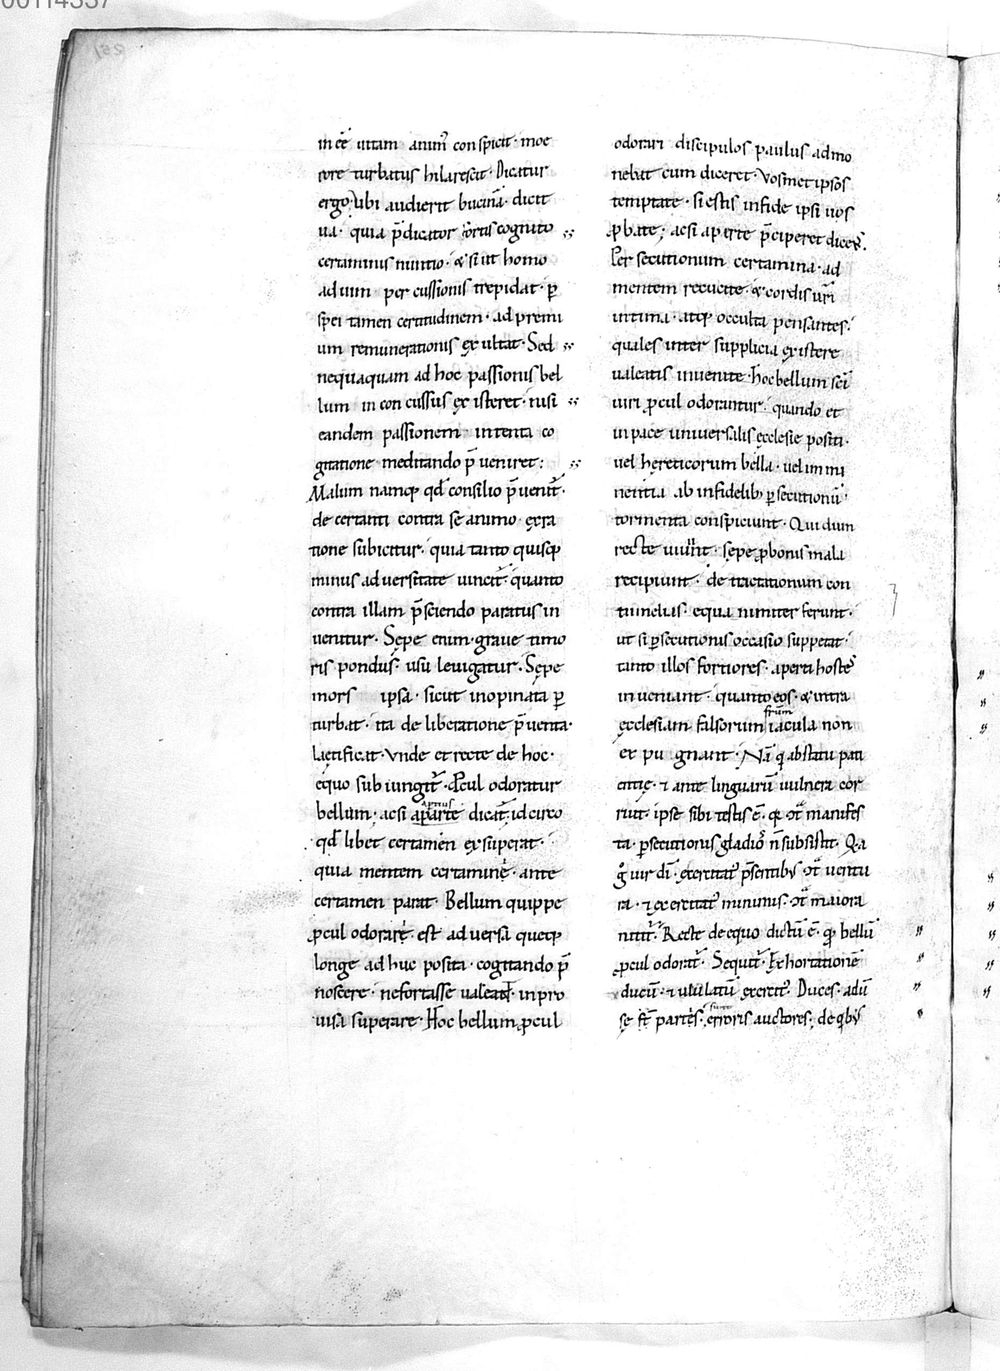 00114337
251
in ęt̄ uitam animū conspicit· moe
rore turbatus hilarescit· Dicatur
ergo· ubi audierit bucinā· dicit
ua· quia p̄dicator fortis cognito
certaminis nuntio· & si ut homo
ad uim percussionis trepidat· ꝑ
spei tamen certitudinem· ad premi
um remunerationis exultat· Sed
nequaquam ad hoc passionis bel
lum inconcussus existeret· nisi
eandem passionem intenta co
gitatione meditando p̄ueniret:
Malum namq; qd̄ consilio p̄uenit̄·
decertanti contra se animo· ex ra
tione subicitur· quia tanto quisq;
minus aduersitate uincit̄· quanto
contra illam p̄sciendo paratus in
uenitur· Sępe enim graue timo
ris pondus· usu leuigatur· Sępe
mors ipsa· sicut inopinata ꝑ
turbat· ita deliberatione p̄uenta·
lętificat· Vnde et recte de hoc·
equo subiungit̄· Procul odoratur
bellum; acsi aparte dicat̄· idcirco
apertius
qd̄libet certamen exsuperat·
quia mentem certamine· ante
certamen parat· Bellum quippe
ꝓcul odorare· est aduersa queq;
longe adhuc posita· cogitando p̄
noscere· ne fortasse ualeat̄ inpro
uisa superare· Hoc bellum ꝓcul
odorari discipulos paulus admo
nebat cum diceret· Vosmet ipsos
temptate· si estis in fide ipsi uos
ꝓbate; acsi aperte p̄ciperet dicens·
Persecutionum certamina· ad
mentem reducite· & cordis urī
intima· atq; occulta pensantes·
quales inter supplicia existere
ualeatis inuenite· Hoc bellum scī
uiri ꝓcul odorantur· quando et
in pace uniuersalis ęcclesię positi·
uel hereticorum bella· uel immi
nentia ab infidelib; ꝑsecutionū·
tormenta conspiciunt· Qui dum
recte uiuunt· sepe ꝓ bonis mala
recipiunt· detractationum con
tumelias· equanimiter ferunt·
ut si ꝑsecutionis occasio suppetat·
tanto illos fortiores· aperti hostes
inueniant· quanto eos· & intra
ęcclesiam falsorum iacula non
frūm
expugnant· Nā q̇ ab statu pati
entię· ⁊ ante linguarū uulnera cor
ruit· ipse sibi testis ē· qꝫ cont̄ manifes
ta· ꝑsecutionis gladiū n̄ subsistit· Q̇a
g̊ uir dī· exercitat̄ p̄sentib;· cont̄ uentu
ra· ⁊ exercitat̄ minimis· cont̄ maiora
nitit̄· Recte de equo dictū ē· qꝫ bellū
ꝓcul odorat̄· Sequit̄· Exhortationē
ducū· ⁊ ululatū exercit̄· Duces· adū
sę st̄ partes· erroris auctores; de qb;
siue